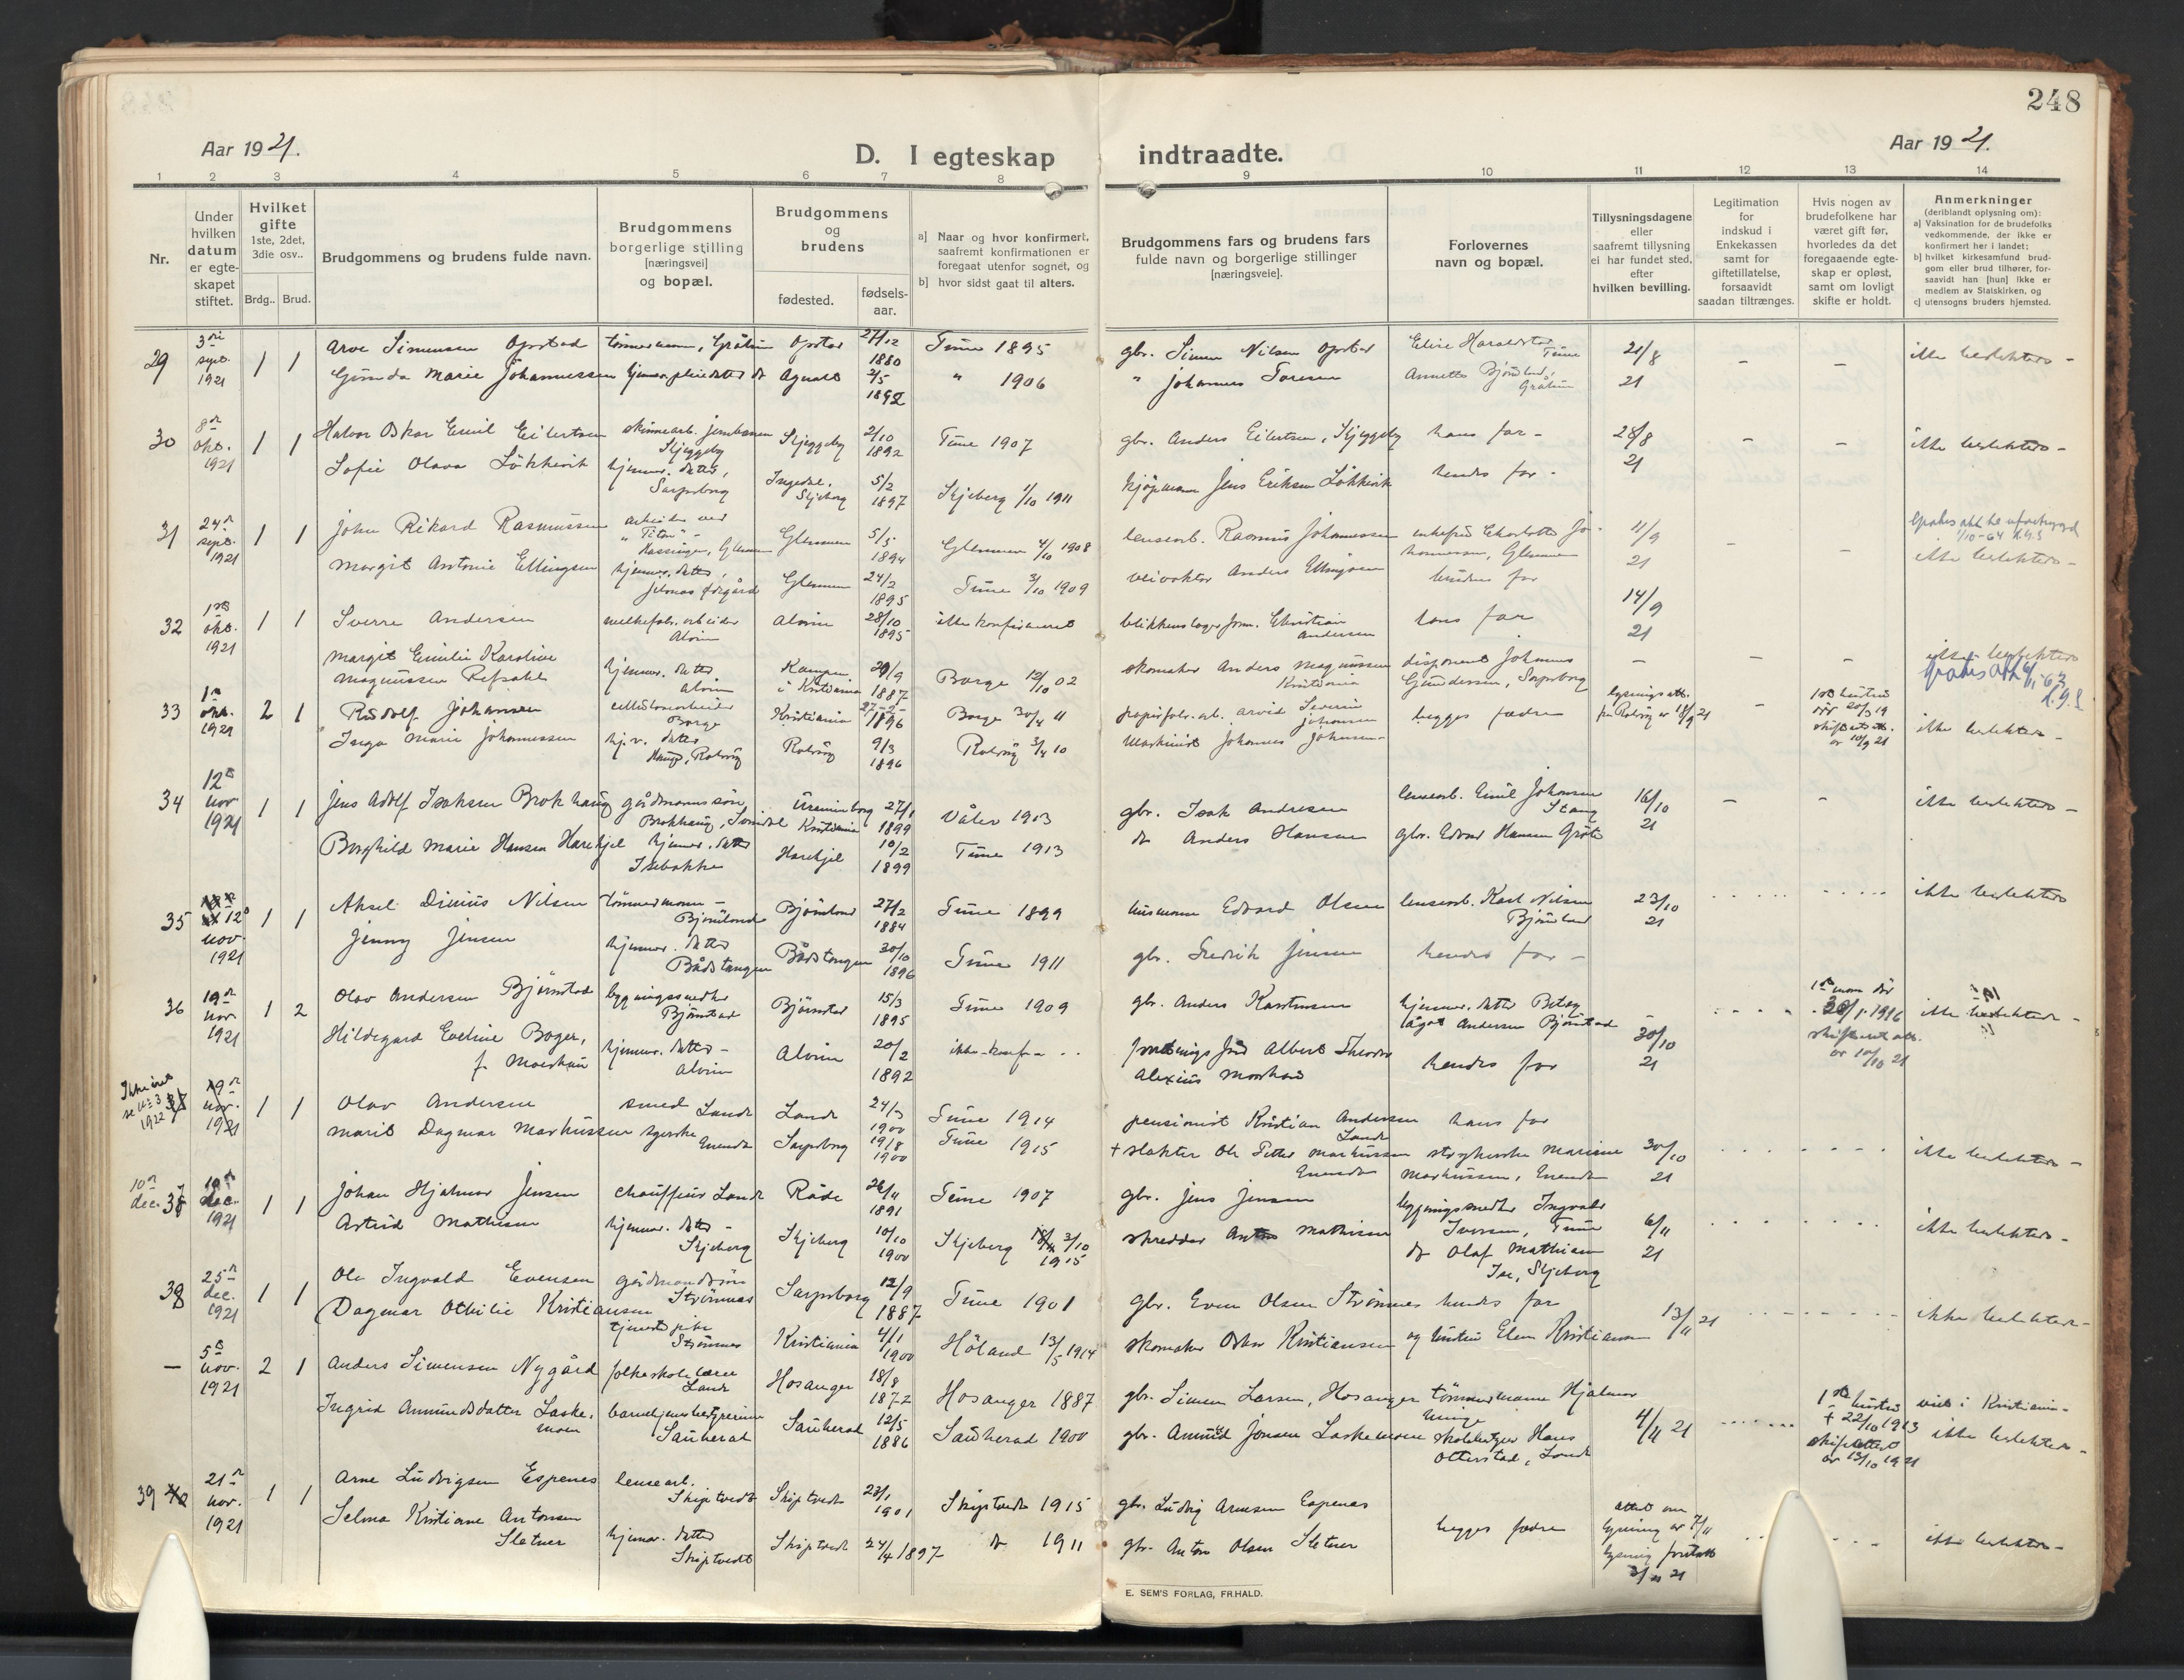 248
Aar 1921.
D. I egteskap indtraadte.
Aar 1921.
1 2 3 4 5 6 7 8 9 10 11 12 13 14
Nr.
Under hvilken datum er egteskapet stiftet.
Hvilket gifte 1ste, 2det, 3die osv..
Brdg..
Brud.
Brudgommens og brudens fulde navn.
Brudgommens borgerlige stilling [næringsvei] og bopæl.
Brudgommens og brudens
fødested.
fødsels-aar.
a] Naar og hvor konfirmert, saafremt konfirmationen er foregaat utenfor sognet, og
b] hvor sidst gaat til alters.
Brudgommens fars og brudens fars fulde navn og borgerlige stillinger [næringsveie].
Forlovernes navn og bopæl.
Tillysningsdagene eller saafremt tillysning ei har fundet sted, efter hvilken bevilling.
Legitimation for indskud i Enkekassen samt for giftetillatelse, forsaavidt saadan tiltrænges.
Hvis nogen av brudefolkene har været gift før, hvorledes da det foregaaende egteskap er opløst, samt om lovligt skifte er holdt.
Anmerkninger
(deriblandt oplysning om):
a] Vaksination for de brudefolks vedkommende, der ikke er konfirmert her i landet;
b] hvilket kirkesamfund brudgom eller brud tilhører, forsaavidt han [hun] ikke er medlem av Statskirken, og
c] utensogns bruders hjemsted.
29 3die sept. 1921 1 1 Arve Simensen Opstad tømmermann, Gråtun Opstad 27/12 1880 Tune 1895 gbr. Simen Nilsen Opstad 21/8 21 - -
Gunda Marie Johannessen 2/5 1892 " 1906 " Johannes Toresen Annette Bjørnland, Gråtun
30 8de okt. 1921 1 1 Halvor Oskar Emil Eilertsen Skjeggeby Skjeggeby 2/10 1892 Tune 1907 gbr. Anders Eilertsen, Skjeggeby hans far - 28/8 21 - -
Sofie Olava Løkkevik hjemmev. datter, Sarpsborg Ingedal, Skjeberg 5/2 1897 Skjeberg 1/10 1911 kjøpmann Jens Eriksen Løkkevik hendes far -
31 24de sept. 1921 1 1 John Rikard Rasmussen arbeider ved "Titan" Glemmen 5/5 1894 Glemmen 4/10 1908 lensearb. Rasmus Johannessen enkefru Charlotte Johannessen, Glemmen 11/9 21 - -
Margit Antonie Ellingsen hjemmev. datter, Glemmen 24/2 1895 Tune 3/10 1909 veivokter Anders Ellingsen brudens far
32 1ste okt. 1921 1 1 Sverre Andersen Alvim Alvim 28/10 1895 ikke konfirmeret blikkenslagerform. Christian Andersen hans far 14/9 21
Margit Emilie Karoline Magnussen Refsahl hjemmev. datter Alvim Kampen i Kristiania 29/9 1887 Borge 12/10 02 skomaker Anders Magnussen Kristiania disponent Johannes Gundersen, Sarpsborg - - -
33 1ste okt. 1921 2 1 Rudolf Johansen cellulosearbeider Borge Kristiania 27-2- 1896 Borge 30/4 11 papirfabr.arb. Arvid Severin Johansen begges fædre lysningsatt. fra Rolvsøy av 18/9 21 -
Inga Marie Johannessen hj.v. datter Hauge, Rolvsøy Rolvsøy 9/3 1896 Rolvsøy 3/4 10 Maskinist Johannes Johansen
34 12te nov 1921 1 1 Jens Adolf Isaksen Brokhaug gårdmannssøn Brokhaug, Svindal Kristiania 27/1 1899 Våler 1913 gbr. Isak Andresen lensearb. Emil Johansen Stang 16/10 21 - -
Borghild Marie Hansen Harekjel hjemmev. datter Isebakke Harekjel 10/2 1899 Tune 1913 do Anders Hansen gbr. Edvard Hansen
35 12te nov. 1921 1 1 Aksel Dinius Nilsen tømmermann - Bjørnland Bjørnland 27/2 1884 Tune 1899 husmann Edvard Olsen lensearb. Karl Nilsen Bjørnland 23/10 21
Jenny Jensen hjemmev. datter Bådstangen Bådstangen 30/10 1896 Tune 1911 gbr. Fredrik Jensen hendes far -
36 19de nov 1921 1 2 Olav Andersen Bjørnstad bygningssnedker Bjørnstad Bjørnstad 15/3 1895 Tune 1909 gbr. Anders Karstensen hjemmev. datter Betsy Andersen Bjørnstad 30/10 21
Hildegard Eveline Boger, hjemmev. datter - Alvim Alvim 20/2 1892 ikke konf. Albert Theodor Alexius hendes far
1922 19de nov. 1921 1 1 Olav Andersen smed Lande Lande 24/3 1900 Tune 1914 pensionist Kristian Andersen Lande hans far
Marit Dagmar Markussen syerske Sarpsborg 19/8 1900 Tune 1915 + slakter Ole Petter Markussen strykerske Marianne Markussen 30/10 21
10de dec. 38 dec. 1921 1 1 Johan Hjalmar Jensen chauffeur Lande Råde 26/11 1891 Tune 1907 gbr. Jens Jensen bygningssnedker Ingvald Iversen, Tune 6/11 21
Astrid Mathisen hjemmev. datter - Skjeberg Skjeberg 10/10 1900 Skjeberg 3/10 1915 skredder Anton Mathisen do Olaf Mathisen Ise, Skjeberg
38 25de dec. 1921 1 1 Ole Ingvald Evensen gårdmandssøn Strømnes Sarpsborg 12/9 1887 Tune 1901 gbr. Even Olsen Strømnes hendes far 13/11 21
Dagmar Othilie Kristiansen tjenestepike Strømnes Kristiania 4/1 1900 Høland 13/5 1914 skomaker Oskar Kristiansen og hustru Elen Kristiansen
- 5te nov. 1921 2 1 Anders Simensen Nygård folkeskolelærer Lande Hosanger 18/8 1872 Hosanger 1887 gbr. Simen Larsen, Hosanger tømmermann Hjalmar 4/11 21 1ste hustru + 22/10 1913 viet i Kristiania
Ingrid Amundsdatter Laskemoen barnehjemsbestyrerinne Sauherad Sauherad 12/5 1886 Sauherad 1900 gbr. Amund Jonsen Laskemoen skolebestyrer Hans Otterstad, Lande skifteattest av 13/10 1921
39 21de nov. 1921 1 1 Arne Ludvigsen Espenes lensearb. Skiptvedt Skiptvedt 23/1 1901 Skiptvedt 1915 gbr. Ludvig Arnesen Espenes begges fædre attest om lysning av 7/11
Selma Kristiane Antonsen Sletner hjemmev. datter Skiptvedt Skiptvedt 24/4 1897 do 1911 gbr. Anton Olsen Sletner
E. SEM'S FORLAG, FR.HALD.